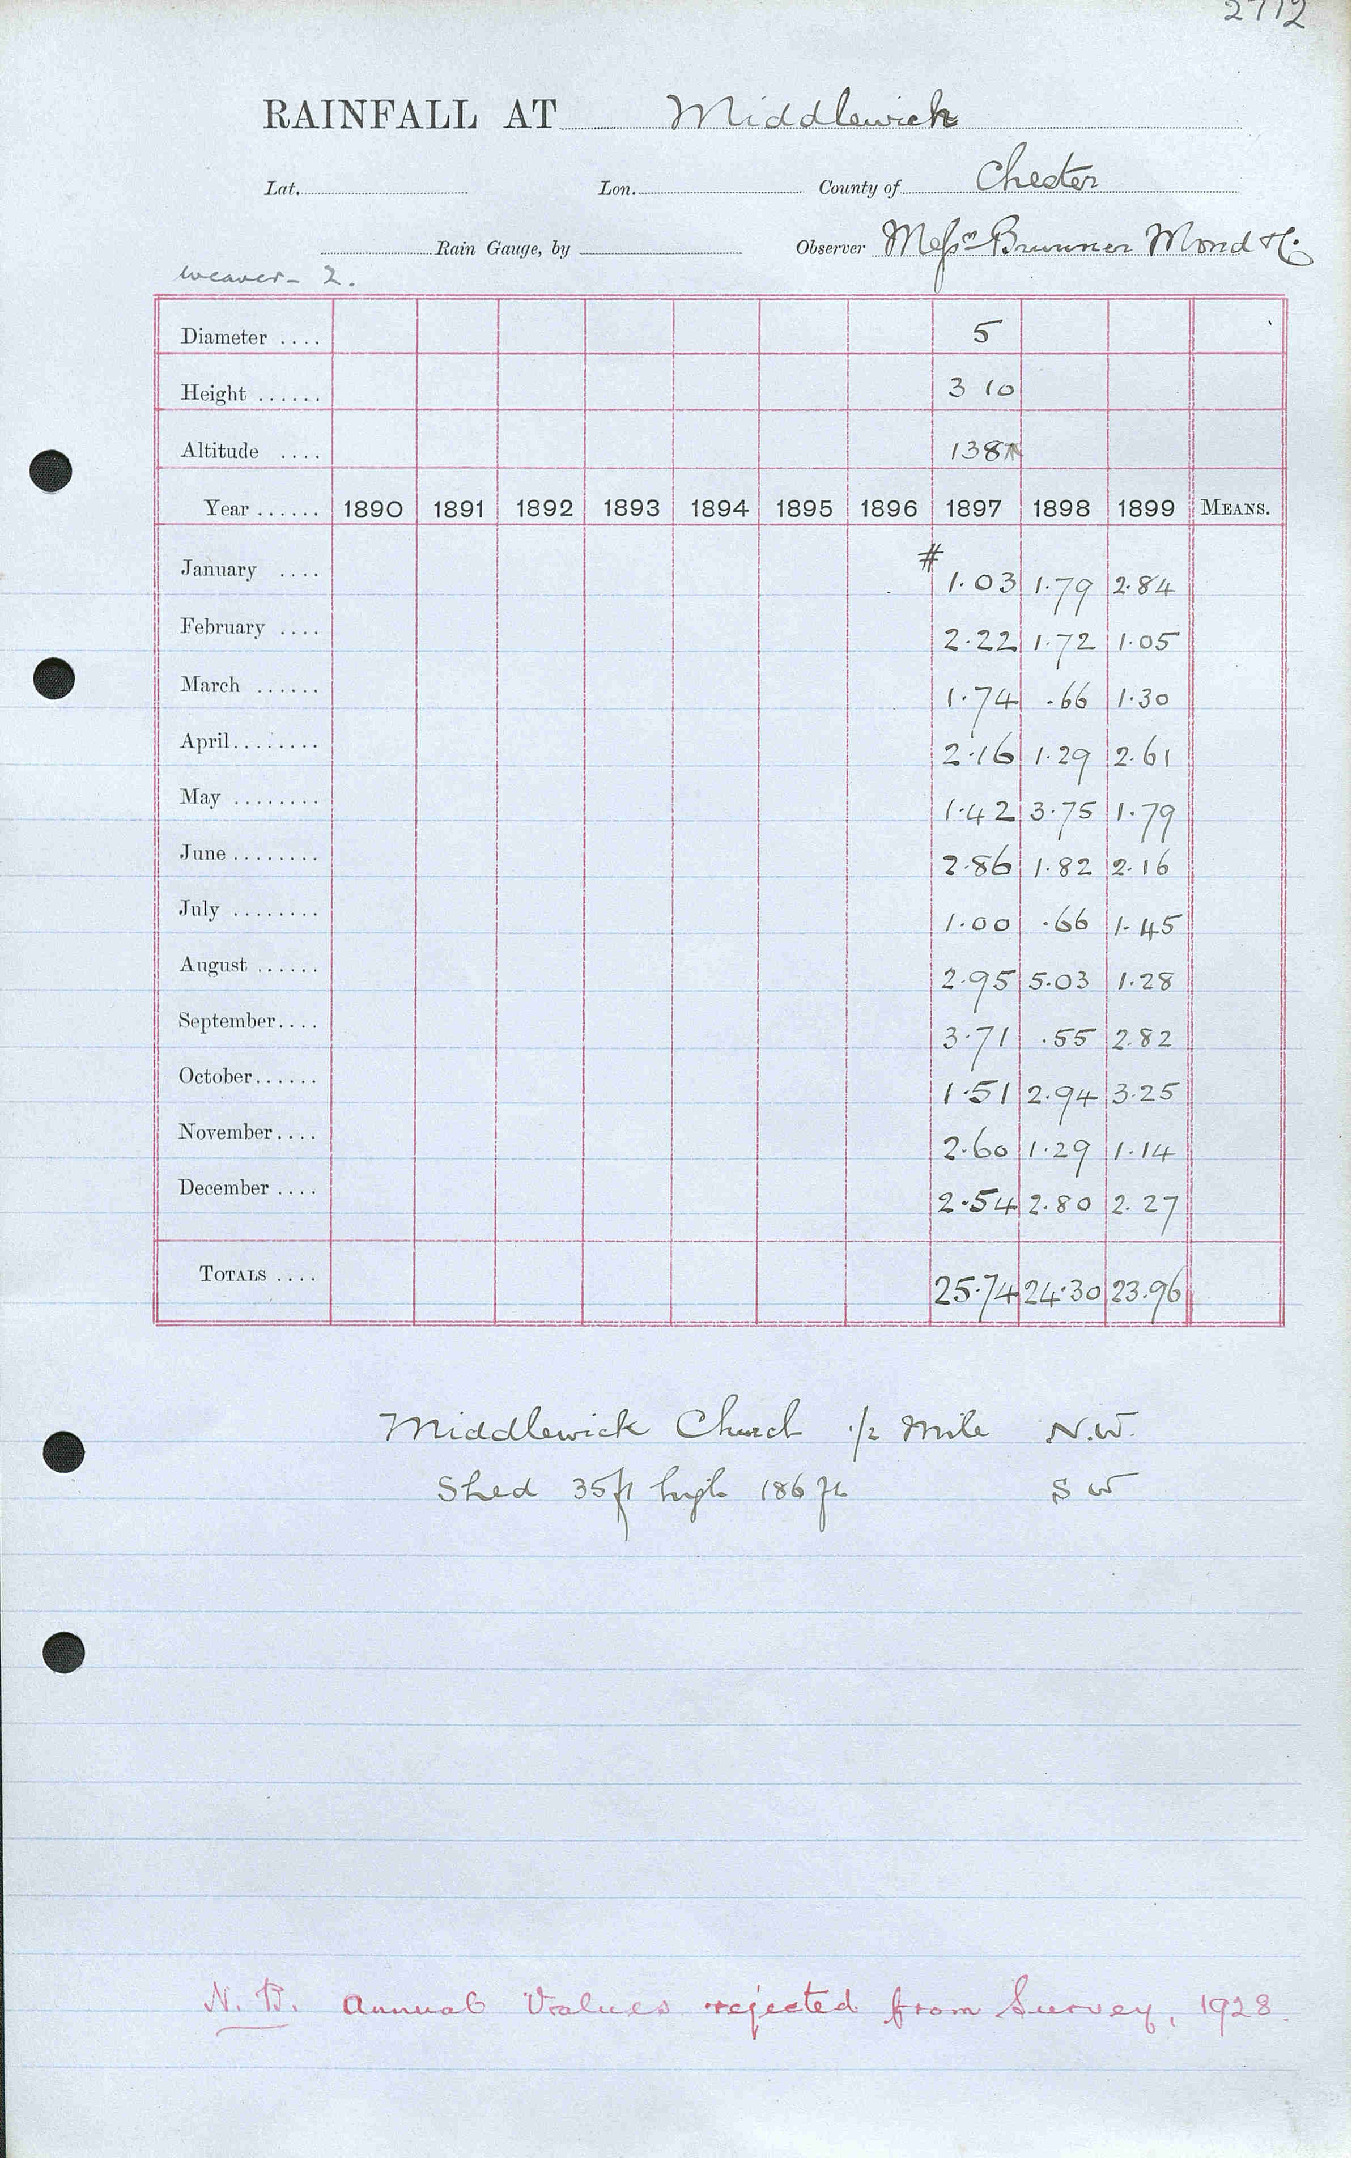 2712
RAINFALL AT Middlewich
Lat. Lon. County of Chester
Rain Gauge, by Observer Messrs Brunner Mond & Co.
Weaver - 2.
Diameter .... 5
Height ...... 3 10
Altitude .... 138
Year ...... 1890 1891 1892 1893 1894 1895 1896 1897 1898 1899 MEANS.
#
January .... 1.03 1.79 2.84
February .... 2.22 1.72 1.05
March ...... 1.74 .66 1.30
April........ 2.16 1.29 2.61
May ........ 1.42 3.75 1.79
June ........ 2.86 1.82 2.16
July ........ 1.00 .66 1.45
August ...... 2.95 5.03 1.28
September.... 3.71 .55 2.82
October...... 1.51 2.94 3.25
November.... 2.60 1.29 1.14
December .... 2.54 2.80 2.27
TOTALS .... 25.74 24.30 23.96
Middlewich Church 1/2 Mile N.W.
Shed 35ft high 186 ft S W
N.B. Annual Values rejected from Survey, 1928.